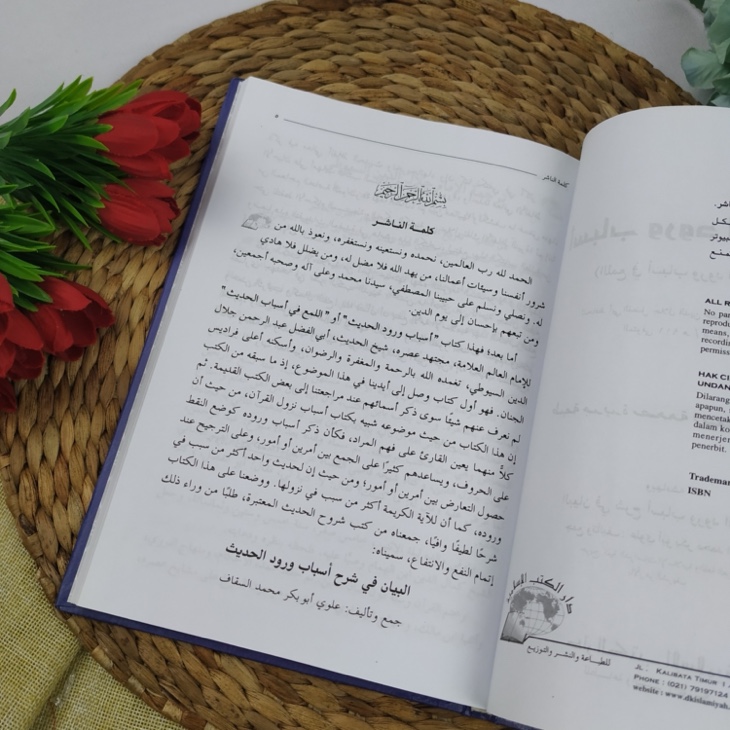 كلمة الناشر
٣
بسم الله الرحمن الرحيم
كلمة الناشر
الحمد لله رب العالمين، نحمده ونستعينه ونستغفره، ونعوذ بالله من
شرور أنفسنا وسيئات أعمالنا، من يهد الله فلا مضل له، ومن يضلل فلا هادي
له. ونصلي ونسلم على حبيبنا المصطفي، سيدنا محمد وعلى آله وصحبه أجمعين،
ومن تبعهم بإحسان إلى يوم الدين.
أما بعد؛ فهذا كتاب "أسباب ورود الحديث" أو "اللمع في أسباب الحديث"
للإمام العالم العلامة، مجتهد عصره، شيخ الحديث، أبي الفضل عبد الرحمن جلال
الدين السيوطي، تغمده الله بالرحمة والمغفرة والرضوان، وأسكنه أعلى فراديس
الجنان. فهو أول كتاب وصل إلى أيدينا في هذا الموضوع، إذ ما سبقه من الكتب
لم نعرف عنهم شيئا سوى ذكر أسمائهم عند مراجعتنا إلى بعض الكتب القديمة. ثم
إن هذا الكتاب من حيث موضوعه شبيه بكتاب أسباب نزول القرآن، من حيث أن
كلاًّ منهما يعين القارئ على فهم المراد، فكأن ذكر أسباب وروده كوضع النقط
على الحروف، ويساعدهم كثيرًا على الجمع بين أمرين أو أمور، وعلى الترجيح عند
حصول التعارض بين أمرين أو أمور؛ ومن حيث إن لحديث واحد أكثر من سبب في
وروده، كما أن للآية الكريمة أكثر من سبب في نزولها. ووضعنا على هذا الكتاب
شرحًا لطيفًا وافيًا، جمعناه من كتب شروح الحديث المعتبرة، طلبًا من وراء ذلك
إتمام النفع والانتفاع، سميناه:
البيان في شرح أسباب ورود الحديث
جمع وتأليف: علوي أبو بكر محمد السقاف
ALL R
No par
reprodu
means,
recordin
permiss
HAK CI
UNDAN
Dilarang
apapun,
mencetak
dalam ko
menerjem
penerbit.
Trademar
ISBN
دار الكتب الإسلامية
للطباعة والنشر والتوزيع
JL : KALIBATA TIMUR I
PHONE : (021) 79197124
website : www.dkislamiyah.